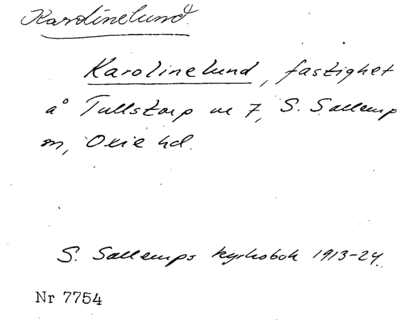 Karolinelund.
Karolinelund, fastighet
å Tullstorp nr 7, S. Sallerup
sn, Oxie hd.
S. Sallerups kyrkobok 1913-24.
Nr 7754